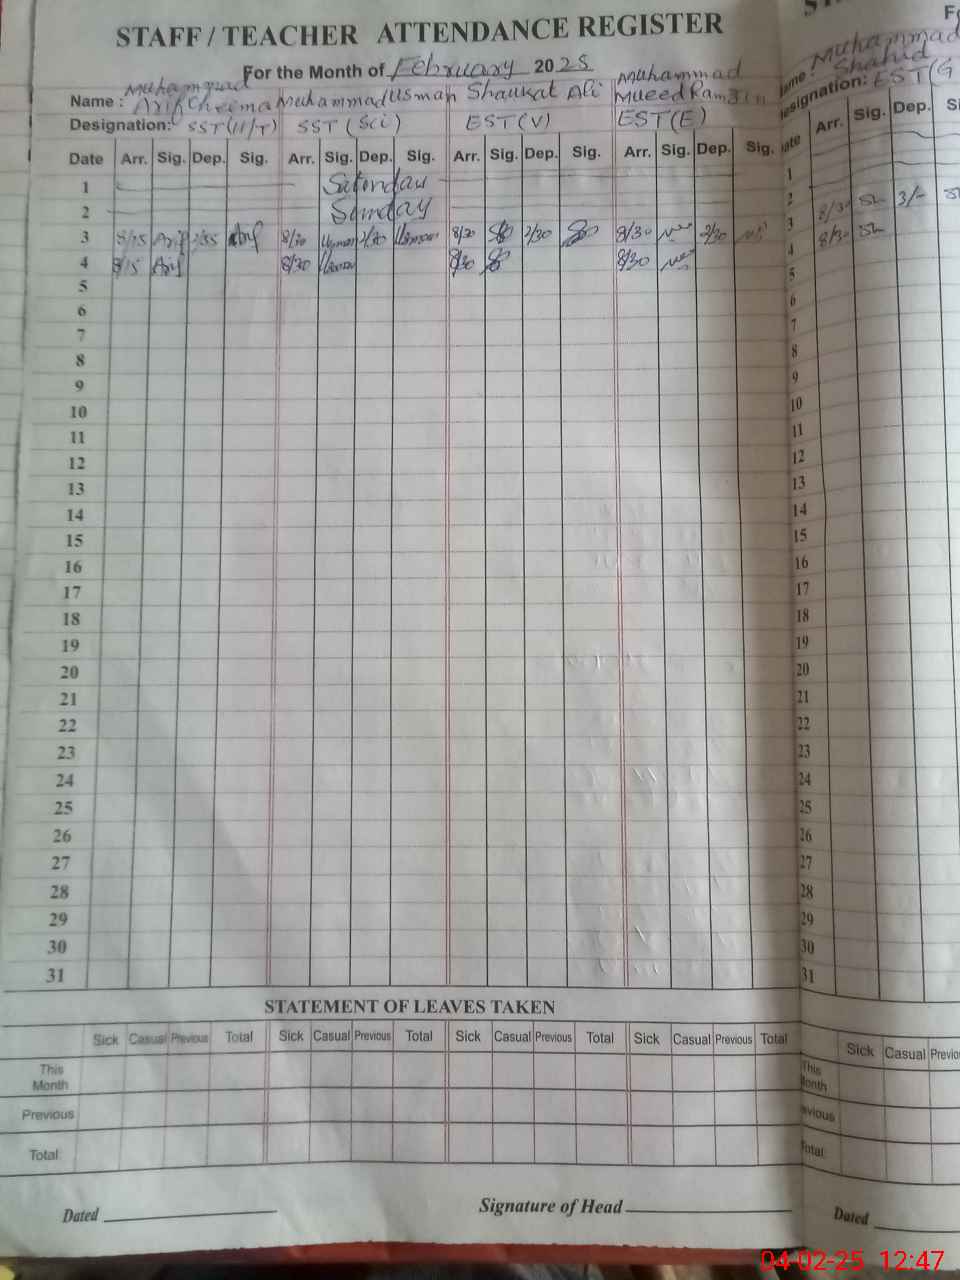 STAFF / TEACHER ATTENDANCE REGISTER
For the Month of February 2025
Name : Muhammad Arif Cheima Muhammad Usman Shaukat Ali Muhammad Mueed Ramzan
Designation: SST(II/T) SST (Sci) EST(V) EST(E)
Date Arr. Sig. Dep. Sig. Arr. Sig. Dep. Sig. Arr. Sig. Dep. Sig. Arr. Sig. Dep. Sig.
1 Saturday
2 Sunday
3 8/15 Arif 2/35 Arif 8/30 Usman 2/30 Usman 8/30 2/30 8/30 2/30
4 8/15 Arif 8/30 Usman 8/30 8/30
5
6
7
8
9
10
11
12
13
14
15
16
17
18
19
20
21
22
23
24
25
26
27
28
29
30
31
STATEMENT OF LEAVES TAKEN
Sick Casual Previous Total Sick Casual Previous Total Sick Casual Previous Total Sick Casual Previous Total
This Month
Previous
Total
Dated
Signature of Head
Muhammad Shahid
EST(G
Arr. Sig. Dep.
1
2
3 8/30 Sh 3/-
4 8/30 Sh
5
6
7
8
9
10
11
12
13
14
15
16
17
18
19
20
21
22
23
24
25
26
27
28
29
30
31
Sick Casual
This
Dated
04-02-25 12:47